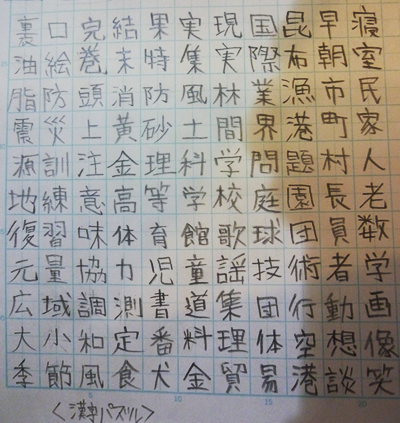 裏口完結果実現国昆早寝
油絵巻末特集実際布朝室
脂防頭消防風林業漁市民
震災上黄砂土間界港町家
源訓注金理科学問題村人
地練意高等学校庭園長老
復習味体育館歌球団員数
元量協力児童謡技術者学
広域調測書道集団行動画
大小和定番料理体空想像
季節風食犬金貿易港談笑
<漢字パズル>